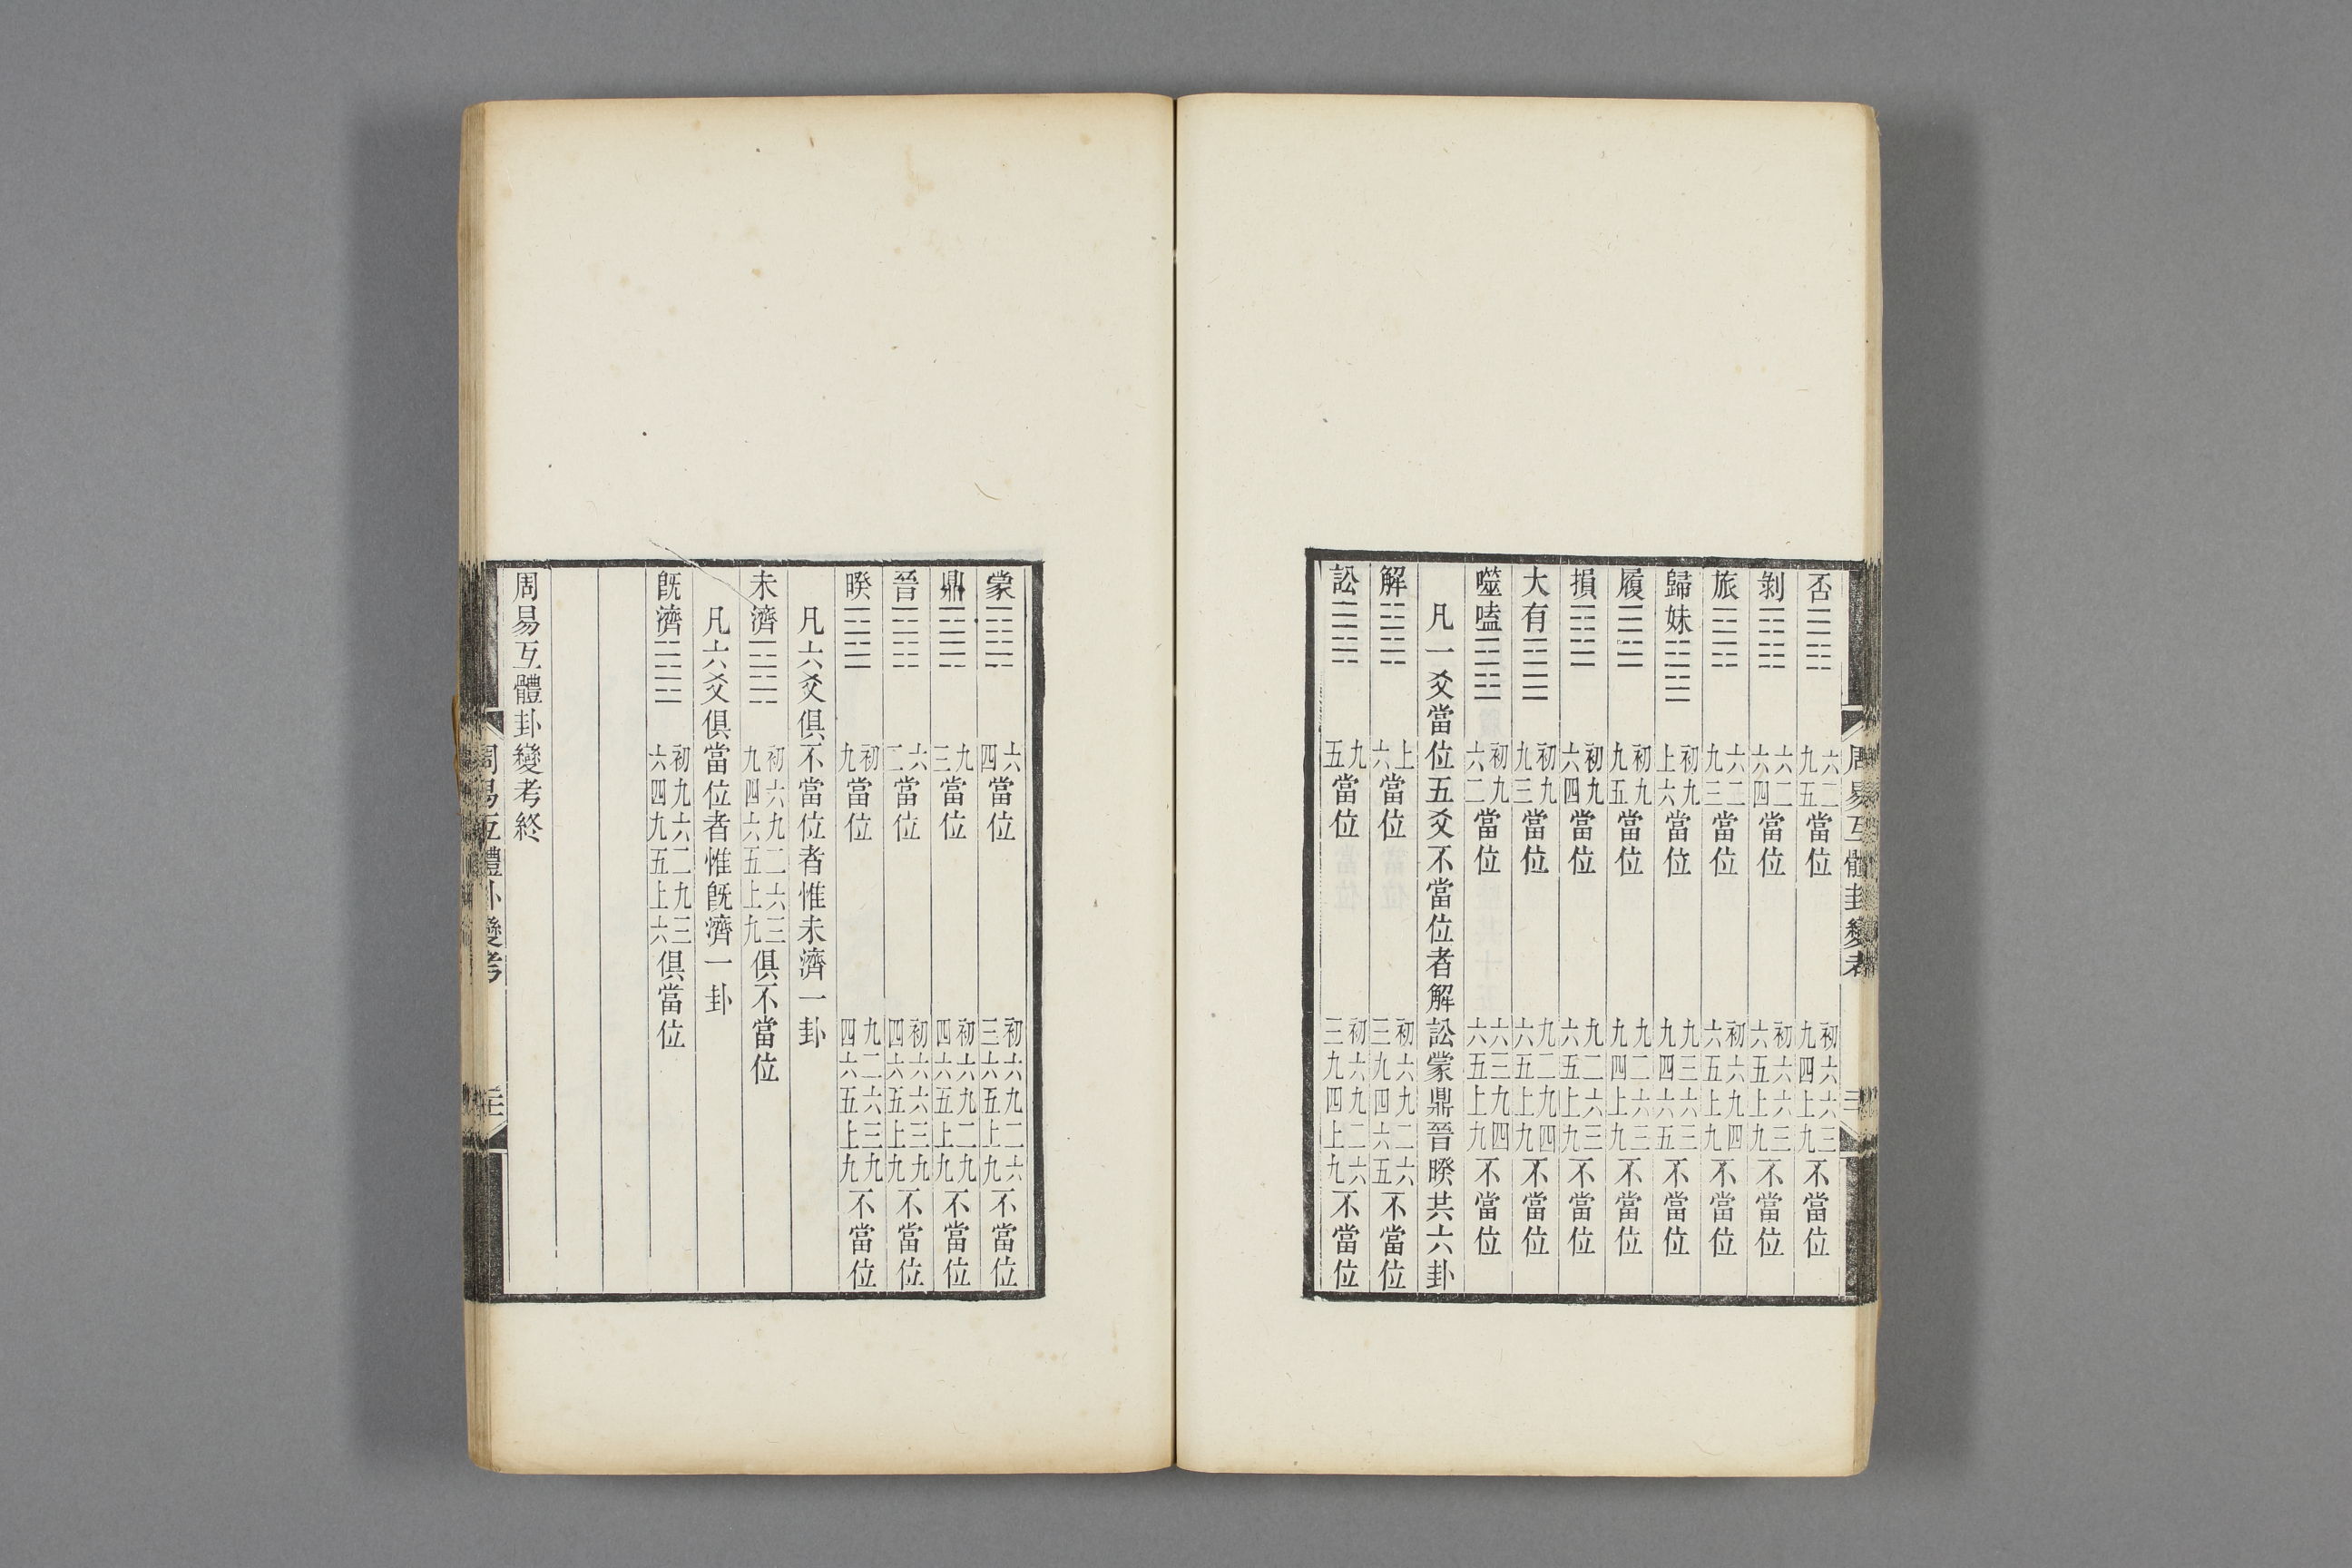 周易互體卦變考
否䷋ 六二九五當位 初六六三九四上九不當位
剝䷖ 六二六四當位 初六六三六五上九不當位
旅䷷ 六二九三當位 初六九四六五上九不當位
歸妹䷵ 初九上六當位 九三六三九四六五不當位
履䷉ 初九九五當位 九二六三九四上九不當位
損䷨ 初九六四當位 九二六三六五上九不當位
大有䷍ 初九九三當位 九二九四六五上九不當位
噬嗑䷔ 初九六二當位 六三九四六五上九不當位
凡一爻當位五爻不當位者解訟蒙鼎晉睽共六卦
解䷧ 上六當位 初六九二六三九四六五不當位
訟䷅ 九五當位 初六九二六三九四上九不當位
蒙䷃ 六四當位 初六九二六三六五上九不當位
鼎䷱ 九三當位 初六九二九四六五上九不當位
晉䷢ 六二當位 初六六三九四六五上九不當位
睽䷥ 初九當位 九二六三九四六五上九不當位
凡六爻俱不當位者惟未濟一卦
未濟䷿ 初六九二六三九四六五上九俱不當位
凡六爻俱當位者惟旣濟一卦
旣濟䷾ 初九六二九三六四九五上六俱當位
周易互體卦變考終
周易互體卦變考